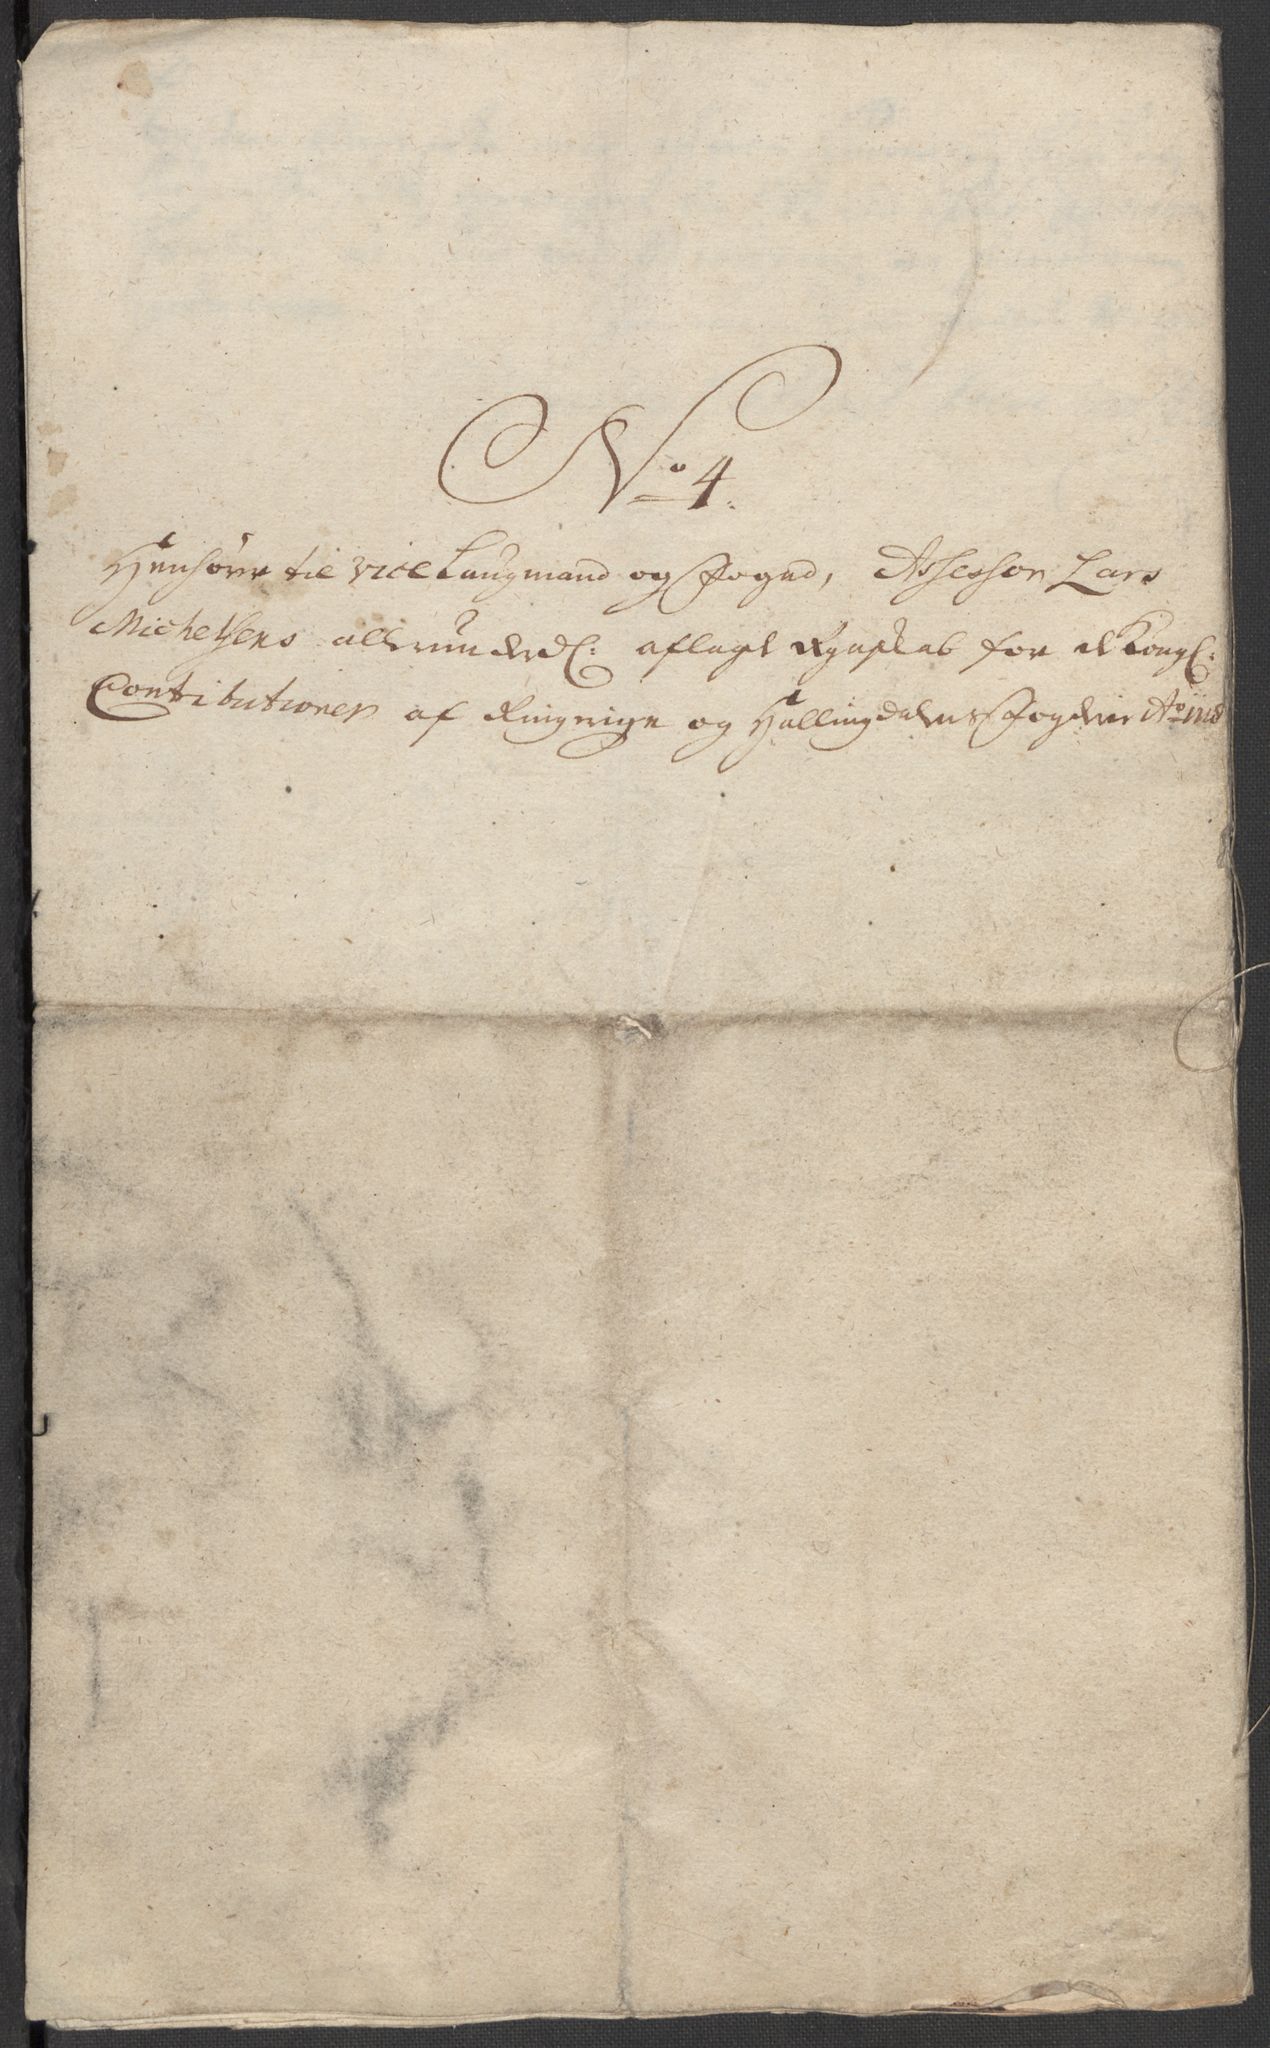 No 4.
Henhører til vice Laugmand og Foged, Assessor Lars
Michelsens allerunderd: aflagt Regnskab for de Kongl:
Contributioner af Ringerige og Hallingdalens Fogderie Ao 1718